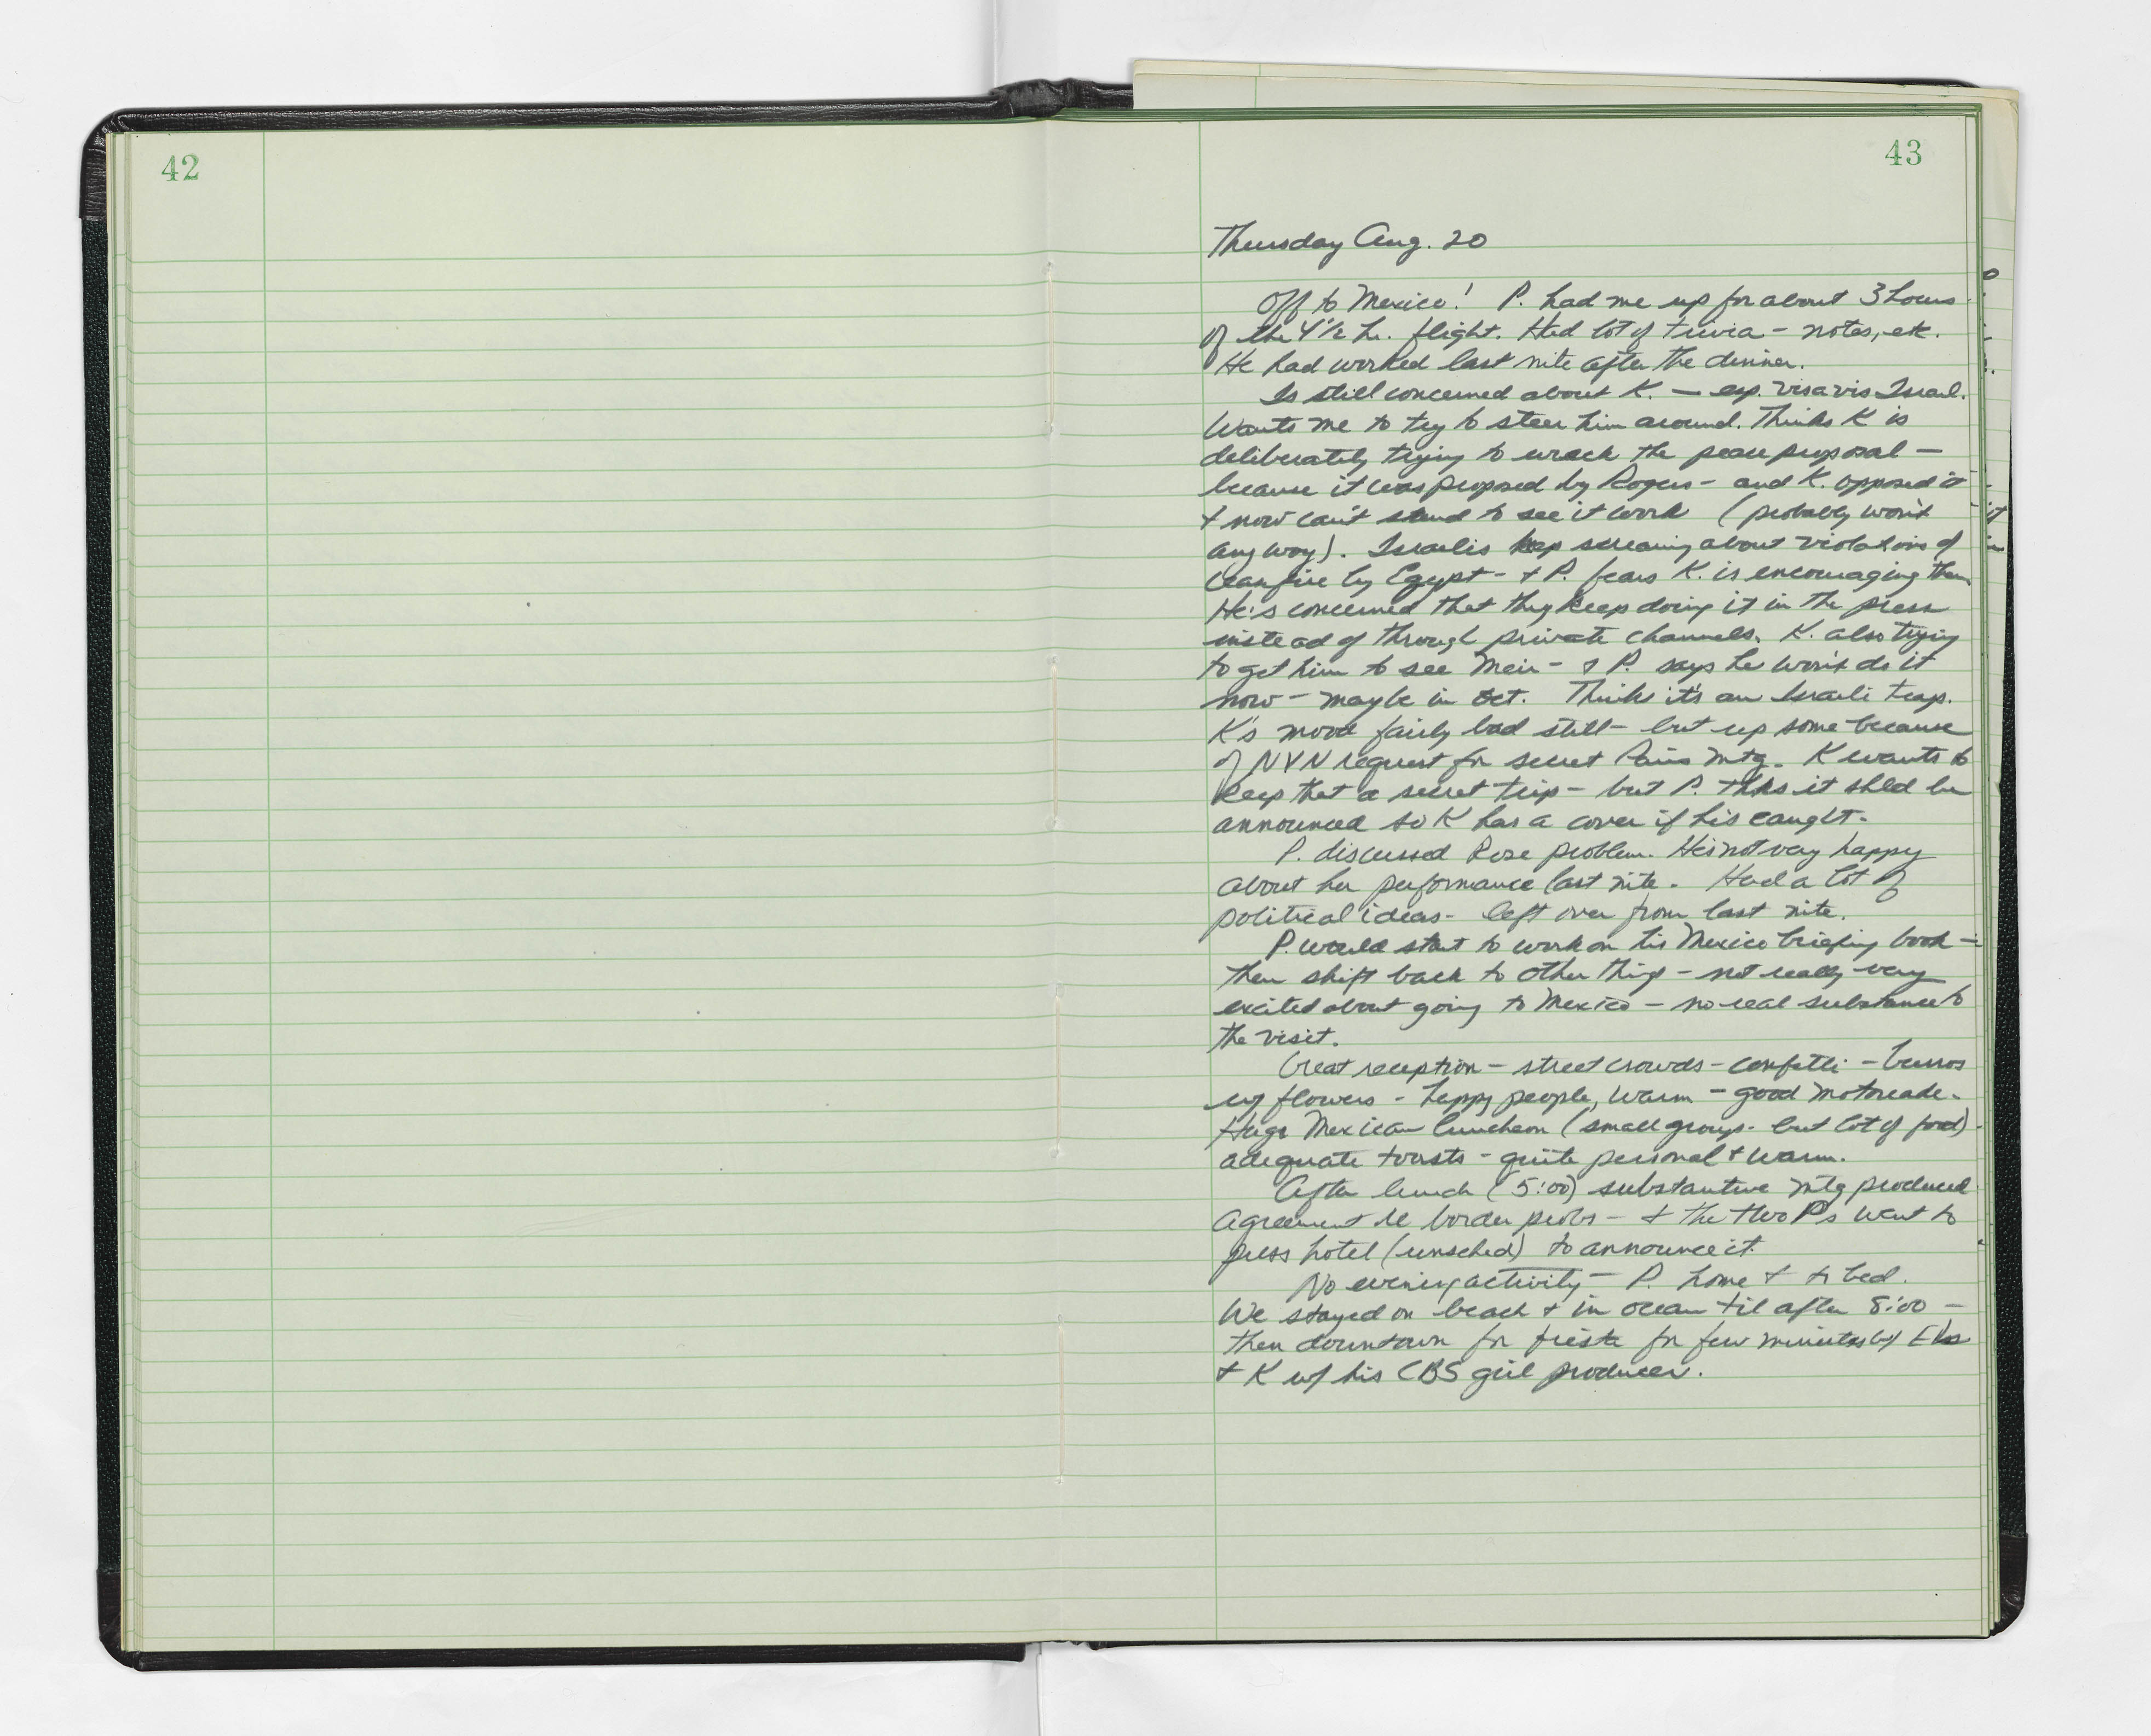 42
43
Thursday Aug. 20
Off to Mexico! P. had me up for about 3 hours
of the 4 1/2 hr. flight. Had lot of trivia - notes, etc.
He had worked last nite after the dinner.
Is still concerned about K. — esp. vis a vis Israel.
Wants me to try to steer him around. Thinks K is
deliberately trying to wreck the peace proposal —
because it was proposed by Rogers - and K. opposed it
& now can't stand to see it work (probably won't
anyway). Israelis keep screaming about violations of
ceasefire by Egypt - & P. fears K. is encouraging them.
He's concerned that they keep doing it in the press
instead of through private channels. K. also trying
to get him to see Meir - & P. says he won't do it
now - maybe in Oct. Thinks it's an Israeli trap.
K's mood fairly bad still - but up some because
of NVN request for secret Paris mtg. K wants to
keep that a secret trip - but P. thks it shld be
announced so K has a cover if his caught.
P. discussed Rose problem. He's not very happy
about her performance last nite. Had a lot of
political ideas - left over from last nite.
P. would start to work on his Mexico briefing book -
then shift back to other things - not really very
excited about going to Mexico - no real substance to
the visit.
Great reception - street crowds - confetti - burros
w/ flowers - happy people, warm - good motorcade.
Huge Mexican luncheon (small group - but lot of food)
adequate toasts - quite personal & warm.
After lunch (5:00) substantive mtg produced
agreement re border probs - & the two P's went to
press hotel (unsched) to announce it.
No evening activity - P. home & to bed.
We stayed on beach & in ocean til after 8:00 -
then downtown for fiesta for few minutes w/ E's
& K w/ his CBS girl producer.